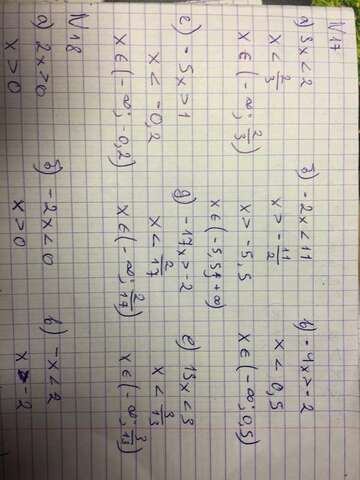 N17
а) 3x < 2
x < 2/3
x ∈ (-∞; 2/3)
б) -2x < 11
x > -11/2
x > -5,5
x ∈ (-5,5; +∞)
в) -4x > -2
x < 0,5
x ∈ (-∞; 0,5)
г) -5x > 1
x < -0,2
x ∈ (-∞; -0,2)
д) -17x > -2
x < 2/17
x ∈ (-∞; 2/17)
е) 13x < 3
x < 3/13
x ∈ (-∞; 3/13)
N18
а) 2x > 0
x > 0
б) -2x < 0
x > 0
в) -x < 2
x > -2